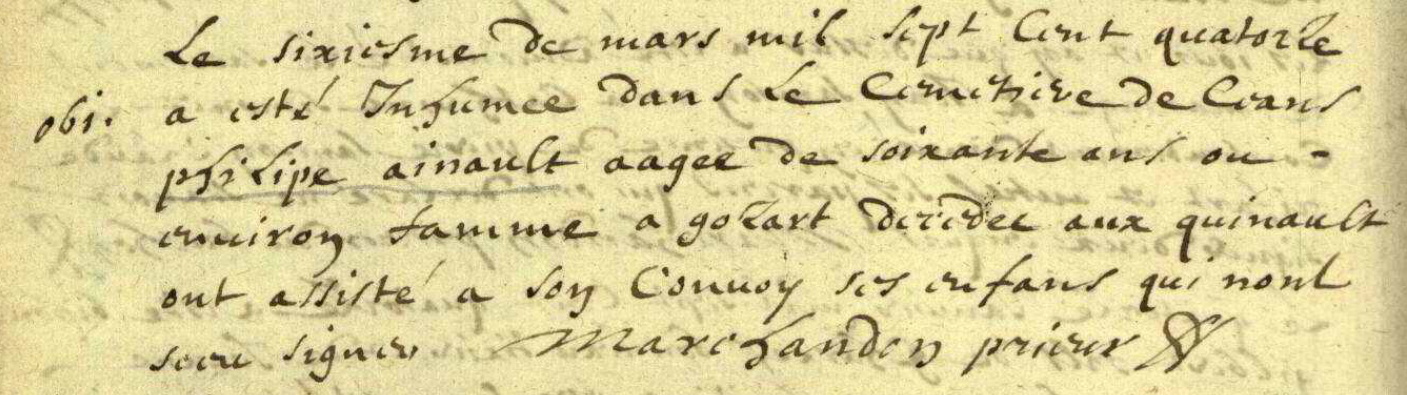 Le sixiesme de mars mil sept Cent quatorze
obi. a esté Inhumee dans Le Cemetiere de Ceans
philipe ainault aagee de soixante ans ou -
enuiron famme a gozart decedee aux quinault
ont assisté a son Conuoy ses enfans qui nont
sceu signer Marchandon prieur